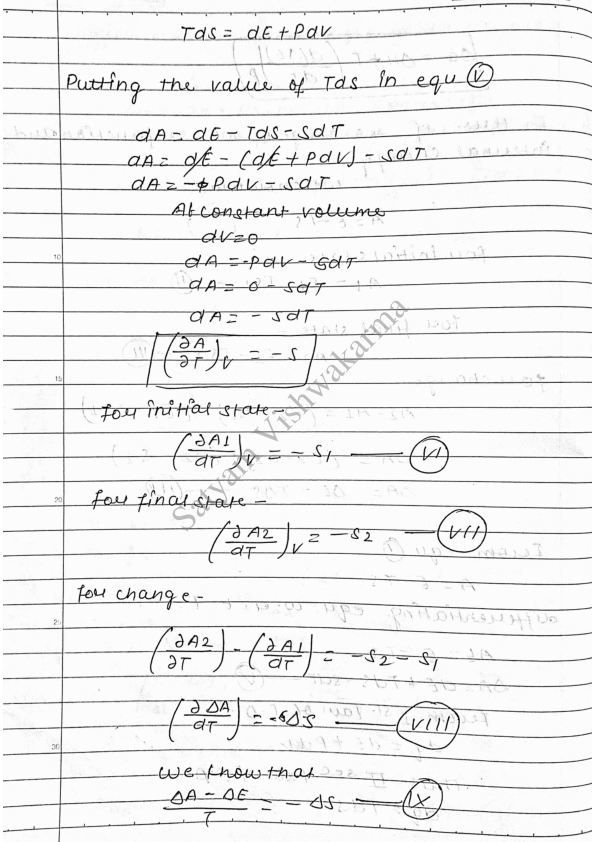 Tds = dE + Pdv
Putting the value of Tds in equ (V)
dA = dE - Tds - SdT
dA = dE - (dE + Pdv) - SdT
dA = - Pdv - SdT
At constant volume
dv=0
dA = -Pdv - SdT
dA = 0 - SdT
dA = - SdT
(∂A/∂T)v = -S
for initial state -
(∂A1/dT)v = - S1 — (VI)
for final state -
(∂A2/dT)v = -S2 — (VII)
for change -
(∂A2/∂T) - (∂A1/dT) = -S2 - S1
(∂ΔA/dT) = -ΔS — (VIII)
we know that
ΔA - ΔE/T = - ΔS — (IX)
10
15
20
25
30
Satyam Vishwakarma